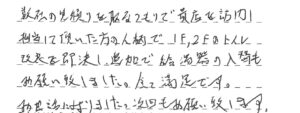 数社の見積りを取るつもりで貴店を訪問し
担当して頂いた方の人柄で1F,2Fのトイレ
改装を即決し、追加で給湯器の入替も
お願い致しました。全て満足です。
お世話になりました。次回もお願い致します。